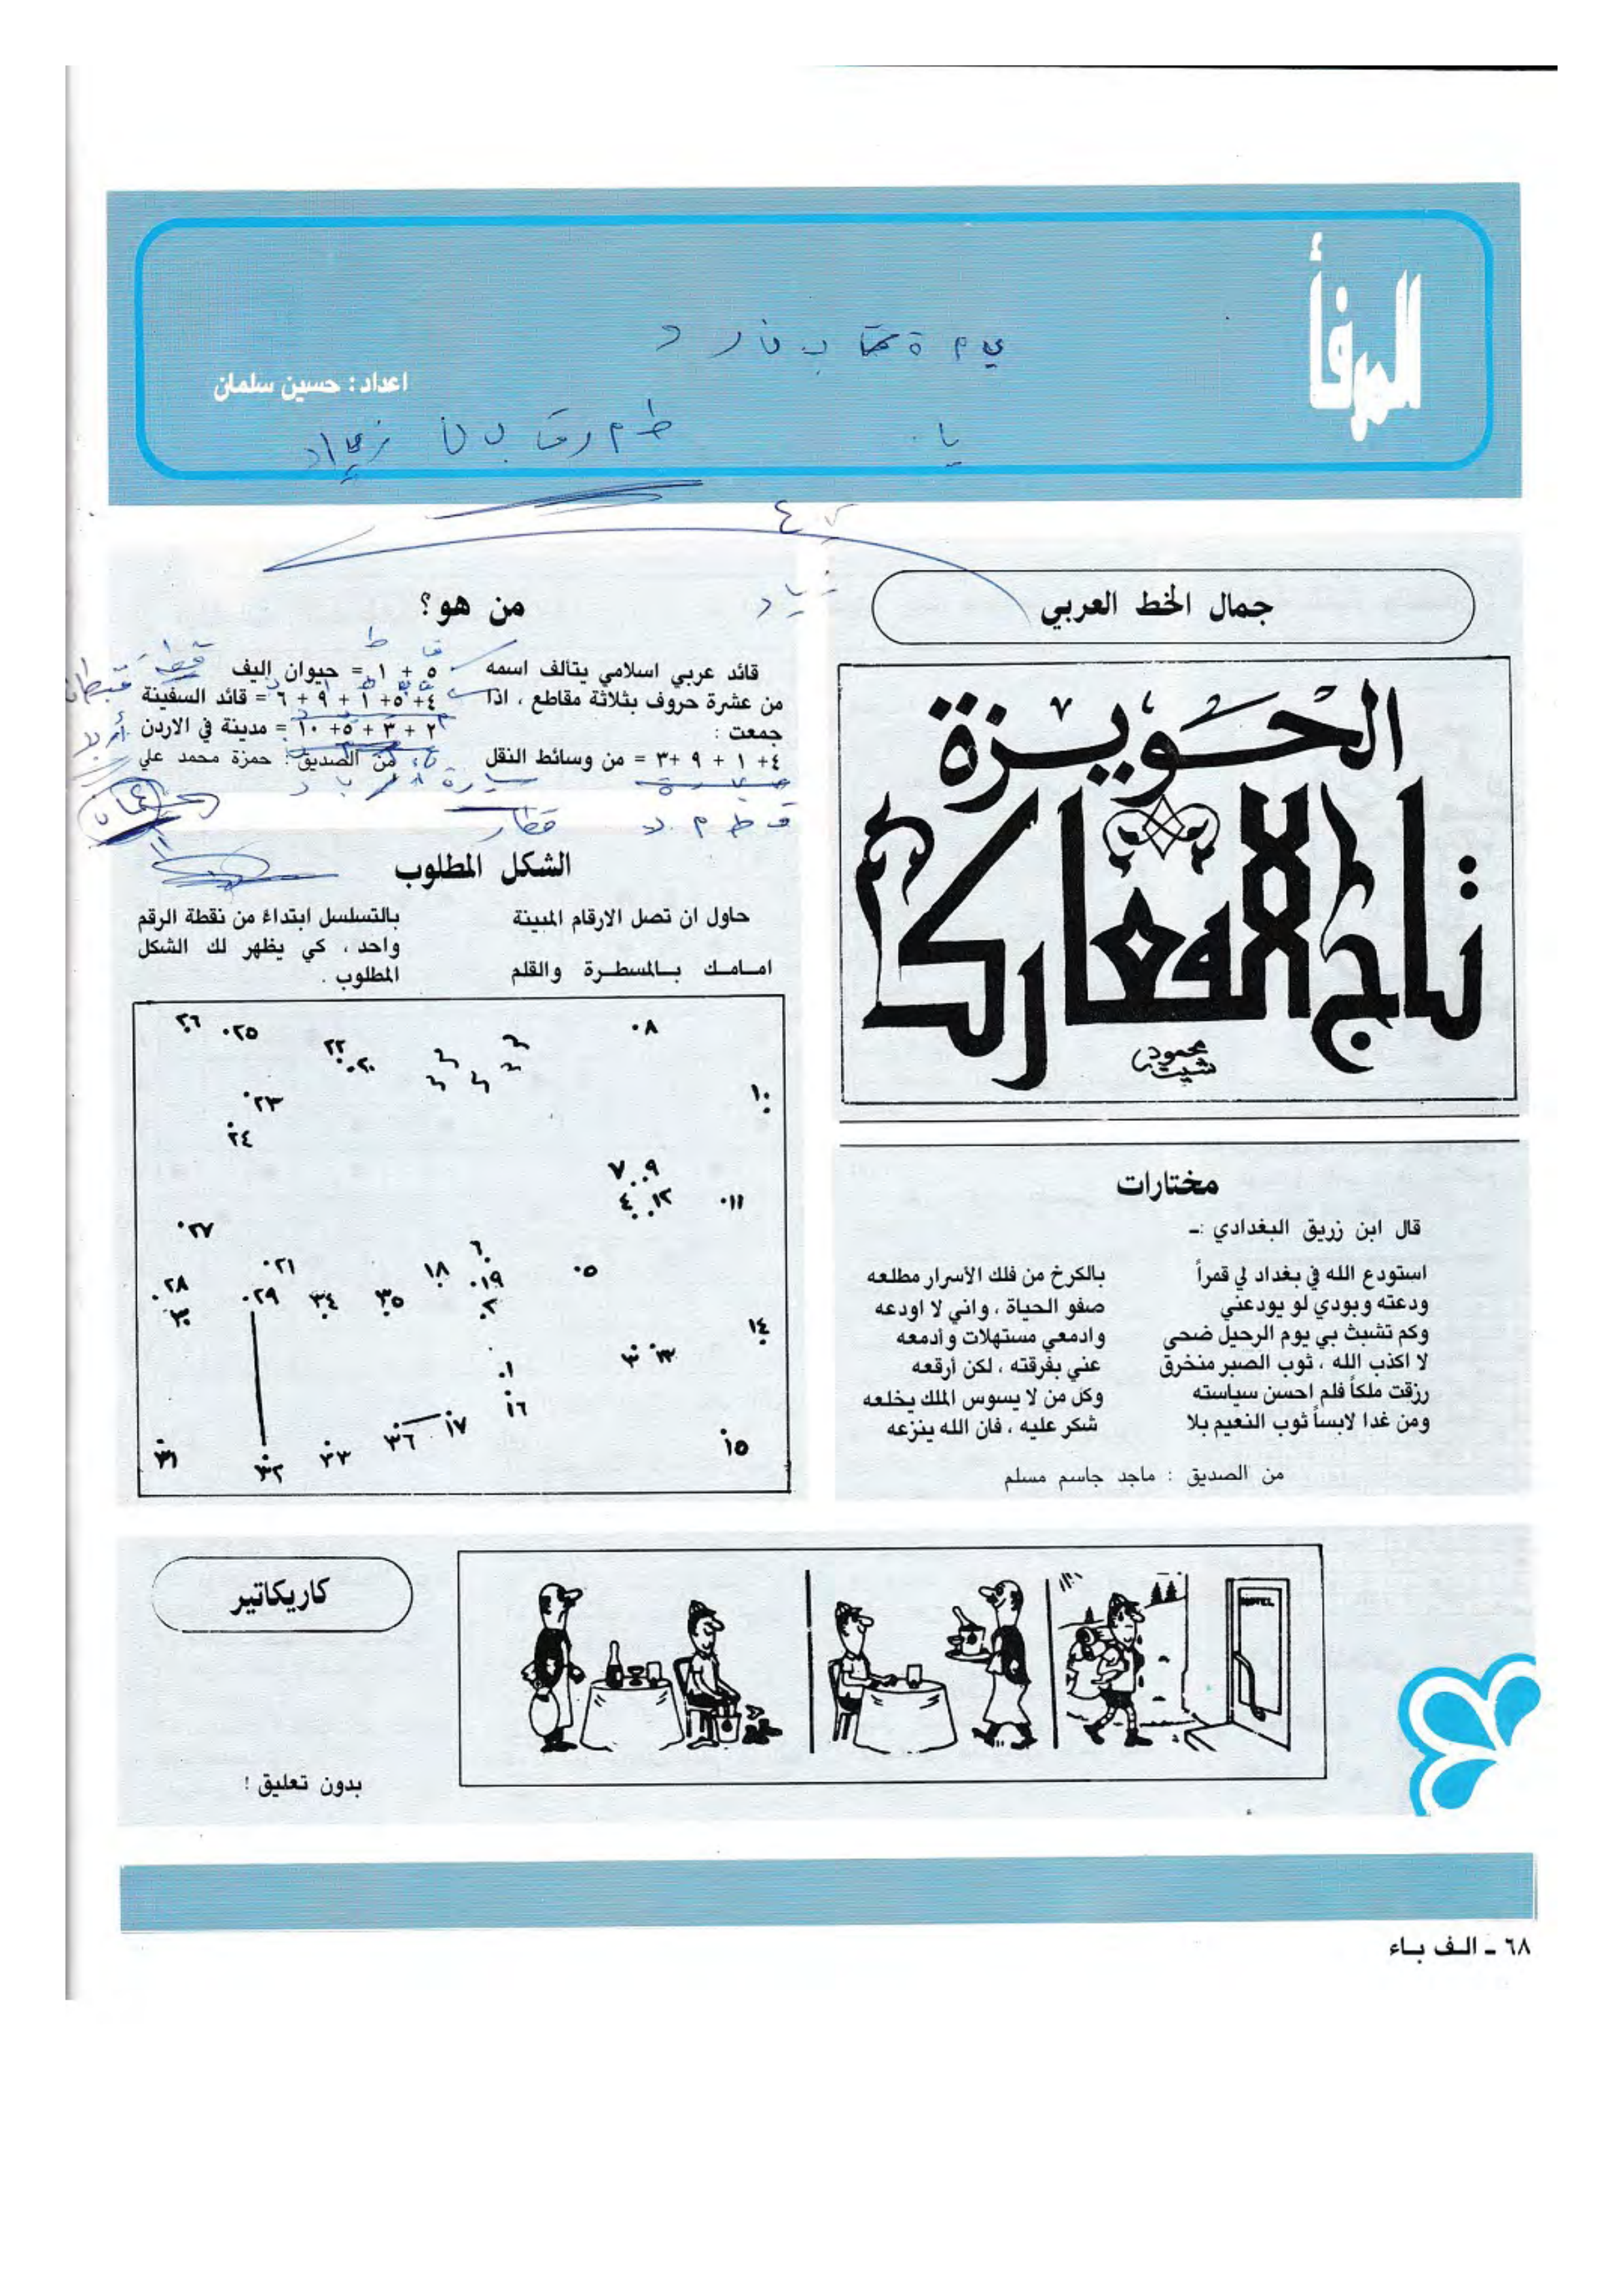 المرفأ
اعداد : حسين سلمان
جمال الخط العربي
الحويزة
تاج المعارك
محمود شيت
مختارات
قال ابن زريق البغدادي :ـ
استودع الله في بغداد لي قمراً بالكرخ من فلك الأسرار مطلعه
ودعته وبودي لو يودعني صفو الحياة ، واني لا اودعه
وكم تشبث بي يوم الرحيل ضحى وادمعي مستهلات وأدمعه
لا اكذب الله ، ثوب الصبر منخرق عني بفرقته ، لكن أرقعه
رزقت ملكاً فلم احسن سياسته وكل من لا يسوس الملك يخلعه
ومن غدا لابساً ثوب النعيم بلا شكر عليه ، فان الله ينزعه
من الصديق : ماجد جاسم مسلم
من هو؟
قائد عربي اسلامي يتألف اسمه
من عشرة حروف بثلاثة مقاطع ، اذا
جمعت :
٤+ ١ + ٩ +٣ = من وسائط النقل
٥ + ١ = حيوان اليف
٤+ ٥+ ١ + ٩ + ٦ = قائد السفينة
٢ + ٣ + ٥+ ١٠ = مدينة في الاردن
من الصديق : حمزة محمد علي
قطار
الشكل المطلوب
حاول ان تصل الارقام المبينة
امامك بالمسطرة والقلم
بالتسلسل ابتداءً من نقطة الرقم
واحد ، كي يظهر لك الشكل
المطلوب .
٢٦ ٢٥ ٢٢ ٢٠ ٨
٢٣ ١٠
٢٤
٧ ٩
٤ ١٢ ١١
٢٧ ٦
٢١ ١٨ ١٩ ٥
٢٨ ٢٩ ٣٤ ٣٥ ٢
٣٠ ١٤
١ ٣ ١٣
١٦
٣٦ ١٧
٣١ ٣٢ ٣٣ ١٥
كاريكاتير
HOTEL
بدون تعليق !
٦٨ ـ الف باء